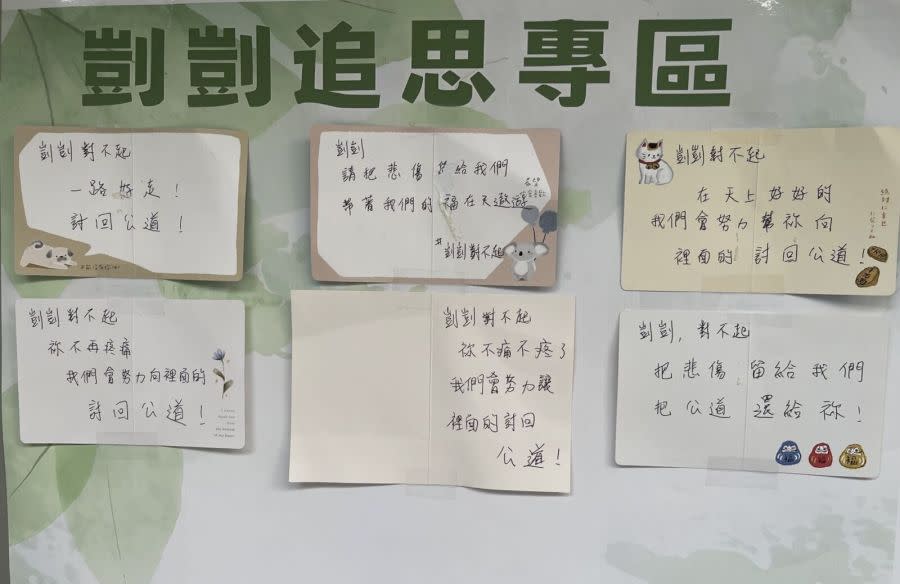 剴剴追思專區
剴剴對不起
一路好走！
討回公道！
剴剴
請把悲傷 給我們
帶著我們的 福在天遨遊
#剴剴對不起
剴剴對不起
在天上好好的
我們會努力幫祢向
裡面的 討回公道！
剴剴對不起
祢不再疼痛
我們會努力向裡面的
討回公道！
剴剴對不起
祢不痛不疼了
我們會努力讓
裡面的討回
公道！
剴剴, 對不起
把悲傷 留給我們
把公道 還給祢！